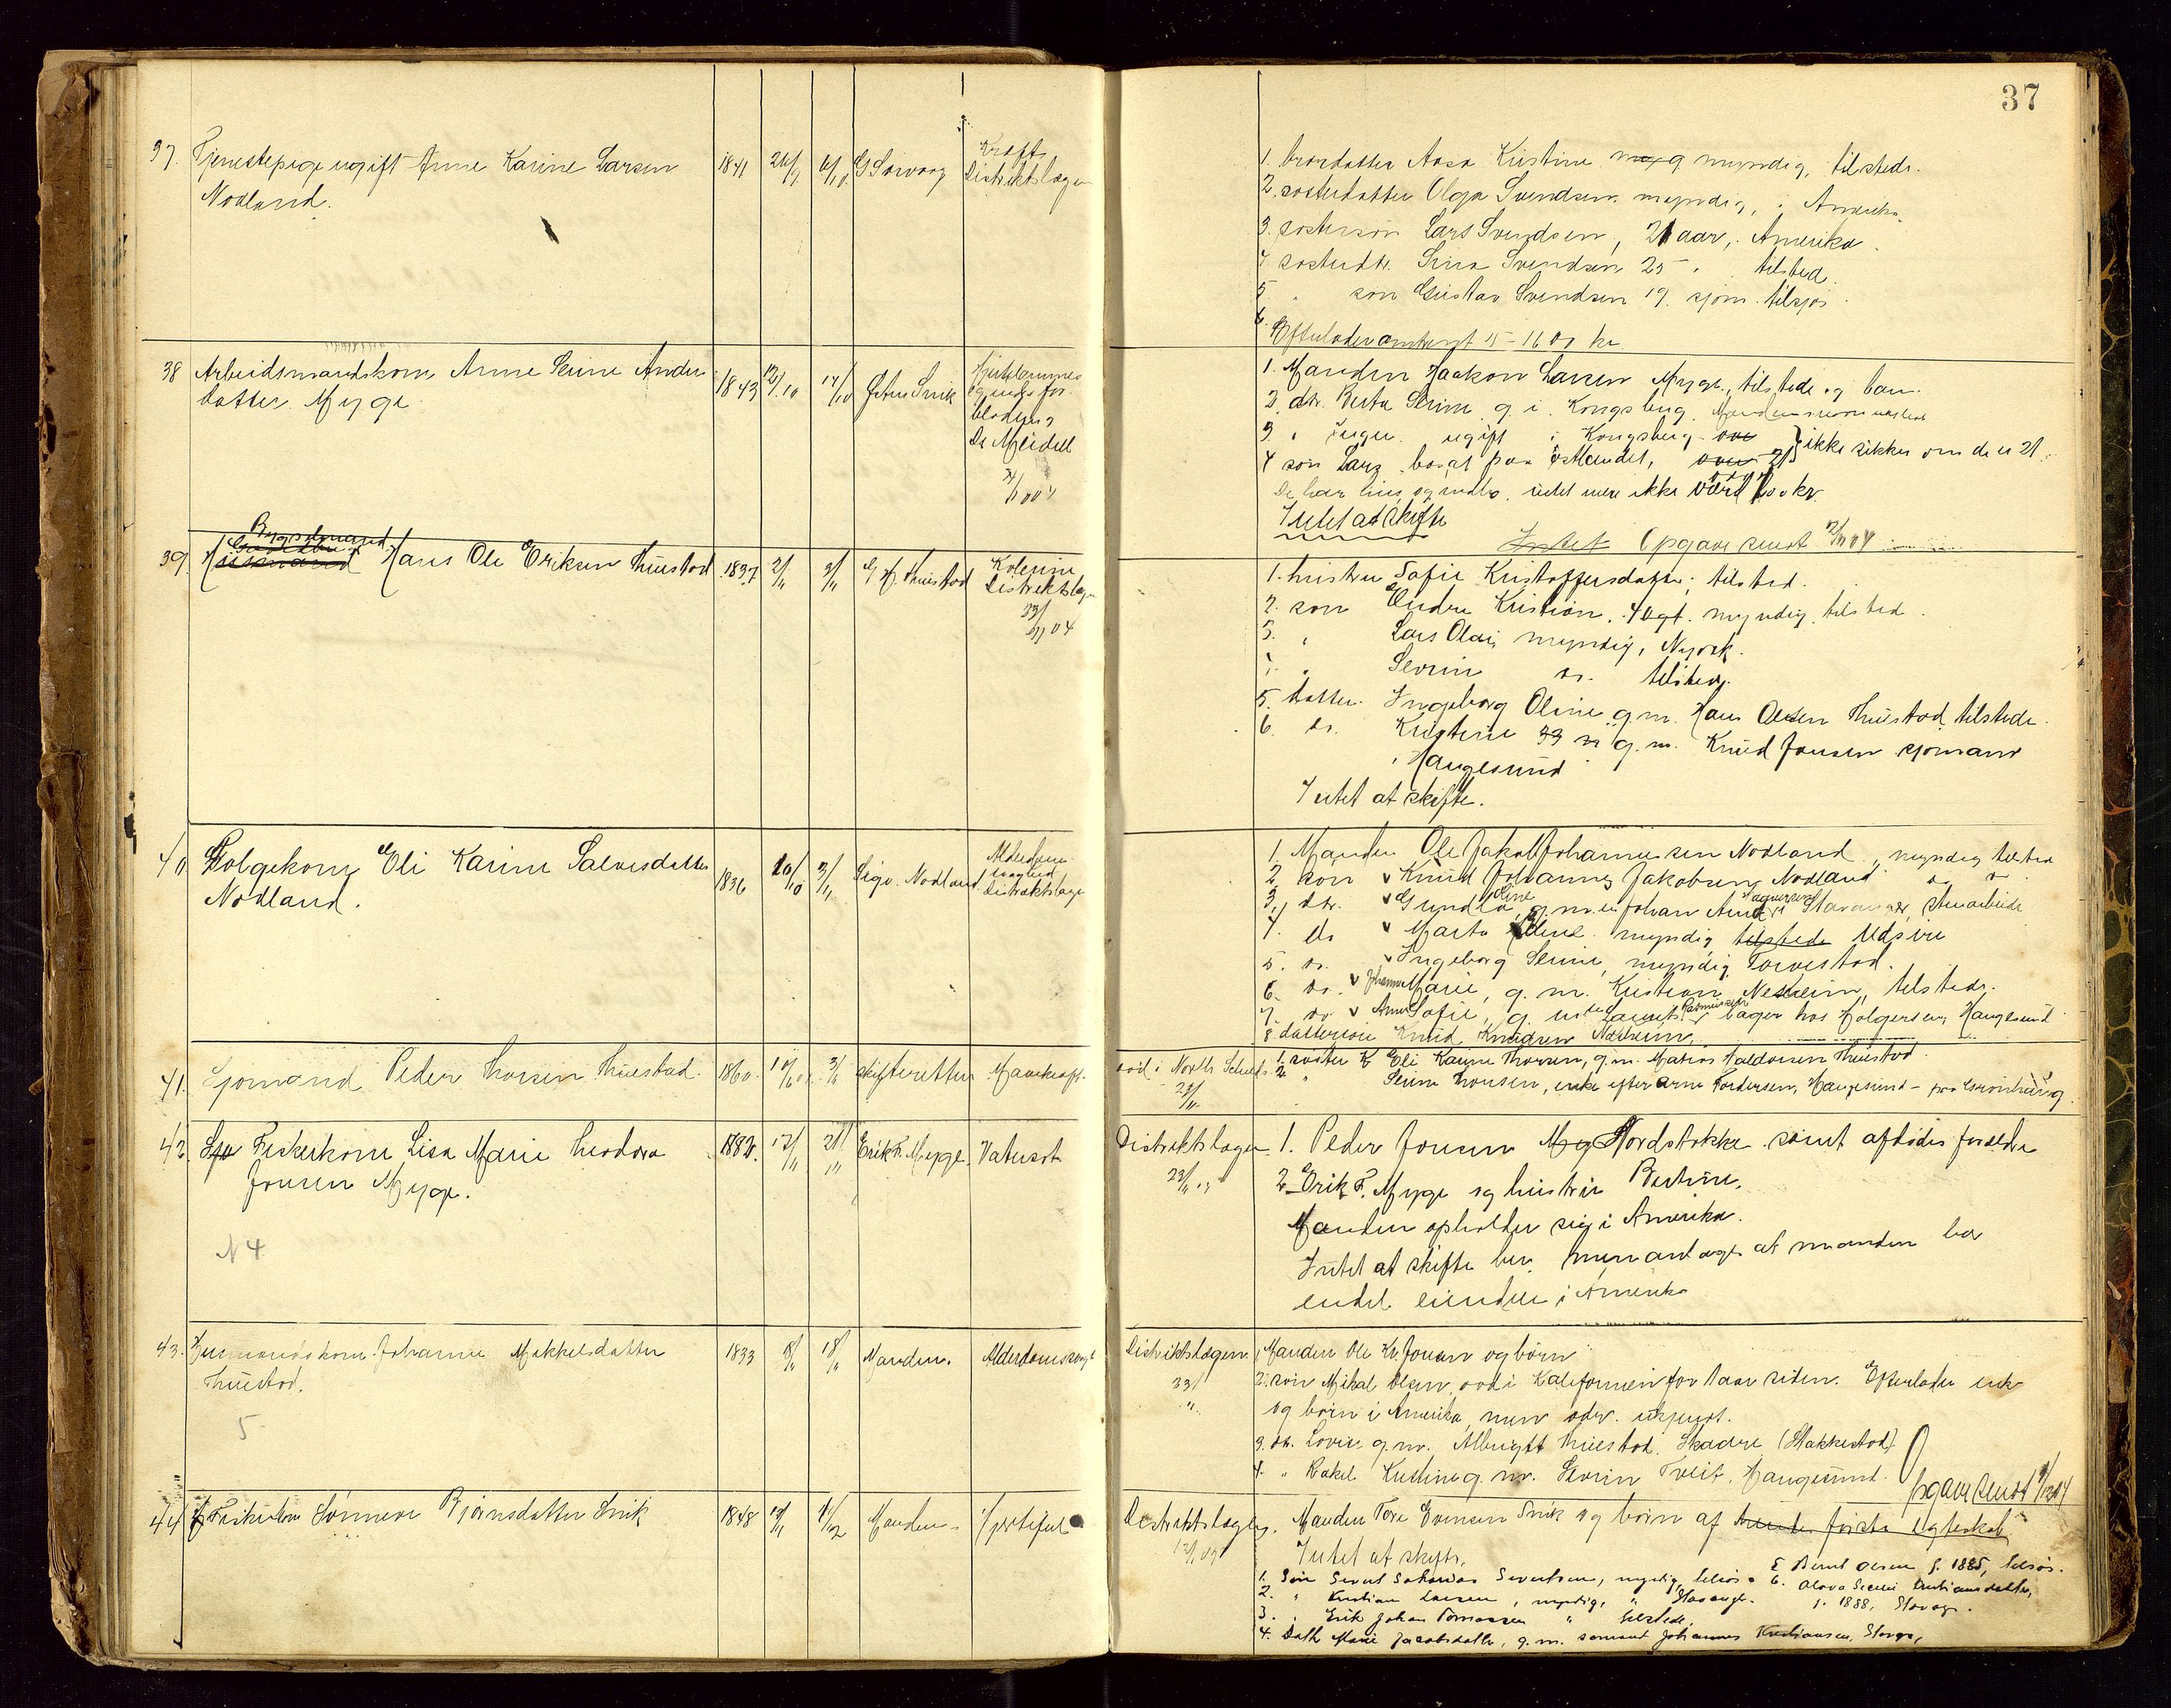 37
37. Tjenestepige ugift Anne Karine Larsen
Nodland.
1841 26/9 6/10. G Sørvaag
Kræft
Distriktslægen
1. brordatter Aasa Kristine myndig, tilstede.
2. søsterdatter Olga Svendsen myndig, i Amerika.
3. søsterson Lars Svendsen, 21 aar, Amerika.
4 søsterdtr. Svendsen 25 tilsted.
5. " son Gustav Svendsen 19. sjøm. tilsjøs.
6.
Efterlader omtrent 15-1600 kr
38 Arbeidsmandskone Anne Serine Anders
datter Myge
1843 12/10 14/10 Peter Snik
blødning
Dr Meidell
1. Manden Haakon Larsen Myge, tilstede og barn.
2. dtr. Berta Serine g. i Kongsberg.
3. " Inger ugift i Kongsberg ove
4 son Lars bosat paa østlandet, over 21 } ikke sikker om de er 21
De har hus og indbo. intet mere ikke værd 100 kr.
Intet at skifte
Intet Opgave sendt 12/11 04
39.
Bygselmand
Husmand Hans Ole Eriksen Thuestad
1837 2/11 3/11 G H Thuestad
Kolerine
Distriktslægen
23/11 04
1. hustru Sofie Kristoffersdatter, tilsted.
2. son Endre Kristian, 40 gt. myndig tilsted.
3. " Lars Olai myndig, Nyork.
4. " Severin do. tilstede.
5. datter Ingeborg Oline g.m. Hans Olsen Thuestad tilstede.
6. do. Kristine 33 g.m. Knud Jonsen sjømand
i Haugesund
Intet at skifte.
40 Folgekone Eli Karine Salvesdatter
Nodland.
1836 20/10 3/11 Sigv. Nodland
Alderdoms
svaghed
Distriktslæge
1. Manden Ole Jakob Johannesen Nodland, myndig tilsted
2 son v Knud Johannes Jakobsen Nodland do do
3. dtr. v Gundla Oline, g.m. Johan Stavanger, stenarbeide
4. do v Marta Oline myndig tilstede Udsire
5. do. v Ingeborg Serine, myndig, Torvestad.
6. do. v Johanne Marie, g. m. Kristian Nesheim, tilstede.
7. do v Anne Sofie, g. m. Lauritz Rasmussen bager hos Holgersen, Haugesund
8. dattersøn Knud Knudsen Nesheim.
41. Sjømand Peder Thorsen Thuestad.
1860. 3/11 skifteretten Mavekræft.
død i North Schields
23/11
1. søster Eli Karine Thorsen, g.m. Matias Haldorsen Thuestad.
2. " Serine Thorsen, enke efter Arne Tordersen, Haugesund
42. Fiskerkone Lisa Marie Teodora
Jonsen Myge.
N 4
1882. 12/11 21/11 Erik F. Myge. Vatersot
Distriktslægen.
1. Peder Jonsen Nordstokke samt afdødes forældre
2. Erik F. Myge og hustru Bertine.
Manden opholder sig i Amerika.
Intet at skifte her, men antages at manden har
endel eiendele i Amerika
43. Husmandskone Johanne Mikkelsdatter
Thuestad.
5
1833 18/11 Manden. Alderdomssvagh
Distriktslægen.
23/11
1 Manden Ole Kr. Jonsen og børn
2. søn Mikal Olsen, død i Kalifornien for 1 aar siden. Efterlader enke
og børn i Amerika, men adr. ukjendt.
3. dtr. Lovise g.m. Albrigt Thuestad. Skaare (Stakkestad)
4. " Rakel Kristine g. m. Severin Tveit, Haugesund.
Opgave sendt 04
44 Fiskerkone Sønneve Bjørnsdatter Snik
1848 1/12 Manden Hjertefeil
Distriktslægen.
Manden Tore Evensen Snik og børn af første egteskab
Intet at skifte.
1. Søn Sivert Sakarias Sivertsen, myndig, tilsjøs
2. " Kristian Larsen, myndig, " Stavanger.
3. " Erik Johan Tomassen " tilstede.
4. Datt Marie Jacobsdatter, g.m. sømand Johannes Kristiansen, Stavgr,
5 Bernt Olsen f. 1885, tilsjøs.
6. Olava Kristiansdatter,
f. 1888, Stavag.